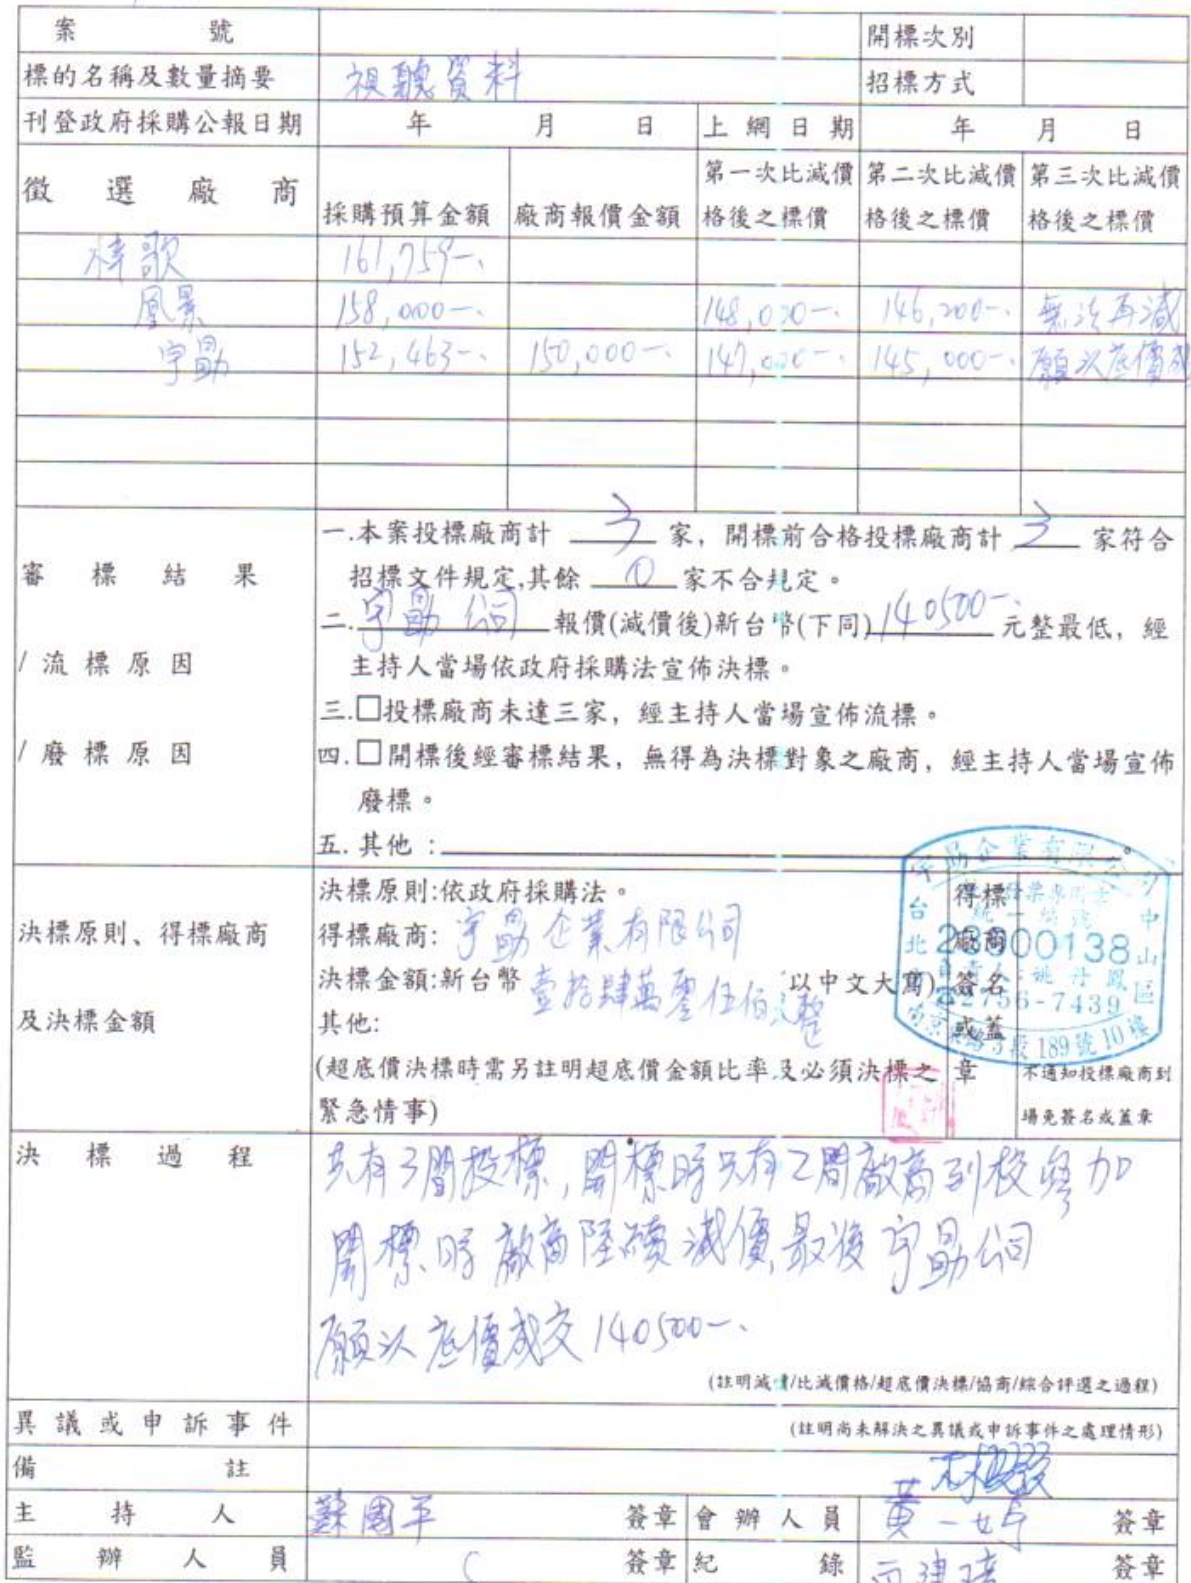 案 號 開標次別
標的名稱及數量摘要 視聽資料 招標方式
刊登政府採購公報日期 年 月 日 上網日期 年 月 日
徵選廠商 採購預算金額 廠商報價金額 第一次比減價格後之標價 第二次比減價格後之標價 第三次比減價格後之標價
161,759-
158,000- 148,000- 146,200- 無法再減
宇勗 152,463- 150,000- 147,000- 145,000- 願以底價
審標結果
/流標原因
/廢標原因
一.本案投標廠商計 3 家，開標前合格投標廠商計 3 家符合
招標文件規定,其餘 0 家不合規定。
二.宇勗公司 報價(減價後)新台幣(下同) 140500- 元整最低，經
主持人當場依政府採購法宣佈決標。
三.□投標廠商未達三家，經主持人當場宣佈流標。
四.□開標後經審標結果，無得為決標對象之廠商，經主持人當場宣佈
廢標。
五.其他：
決標原則、得標廠商
及決標金額
決標原則:依政府採購法。
得標廠商:宇勗企業有限公司
決標金額:新台幣 壹拾肆萬零伍佰元整 以中文大寫)
其他:
(超底價決標時需另註明超底價金額比率及必須決標之
緊急情事)
得標
廠商
簽名
或蓋
章
不通知投標廠商到
場免簽名或蓋章
決標過程
共有3間投標,開標時只有2間廠商到校參加
開標時廠商陸續減價,最後宇勗公司
願以底價成交140500-
(註明減價/比減價格/超底價決標/協商/綜合評選之過程)
異議或申訴事件 (註明尚未解決之異議或申訴事件之處理情形)
備註
主持人 簽章 會辦人員 簽章
監辦人員 簽章 紀錄 簽章